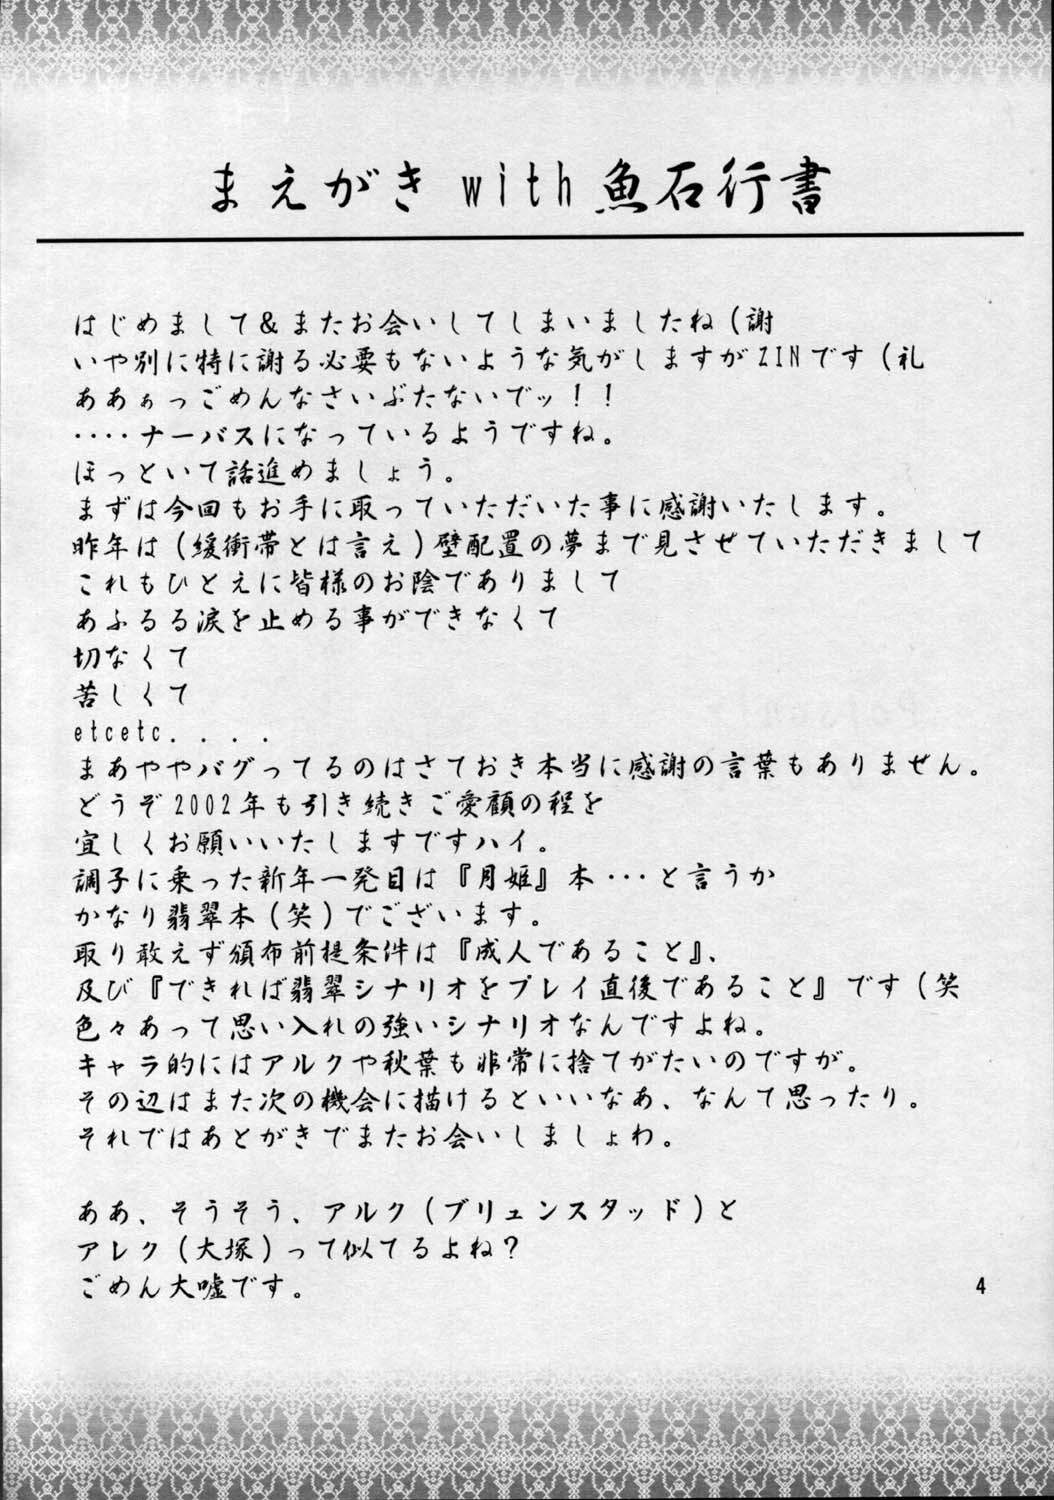 まえがき with 魚石行書
はじめまして＆またお会いしてしまいましたね（謝
いや別に特に謝る必要もないような気がしますがZINです（礼
ああぁっごめんなさいぶたないでッ！！
････ナーバスになっているようですね。
ほっといて話進めましょう。
まずは今回もお手に取っていただいた事に感謝いたします。
昨年は（緩衝帯とは言え）壁配置の夢まで見させていただきまして
これもひとえに皆様のお陰でありまして
あふるる涙を止める事ができなくて
切なくて
苦しくて
etcetc....
まあややバグってるのはさておき本当に感謝の言葉もありません。
どうぞ2002年も引き続きご愛顧の程を
宜しくお願いいたしますですハイ。
調子に乗った新年一発目は『月姫』本･･･と言うか
かなり翡翠本（笑）でございます。
取り敢えず頒布前提条件は『成人であること』、
及び『できれば翡翠シナリオをプレイ直後であること』です（笑
色々あって思い入れの強いシナリオなんですよね。
キャラ的にはアルクや秋葉も非常に捨てがたいのですが。
その辺はまた次の機会に描けるといいなあ、なんて思ったり。
それではあとがきでまたお会いしましょわ。
ああ、そうそう、アルク（ブリュンスタッド）と
アレク（大塚）って似てるよね？
ごめん大嘘です。
4